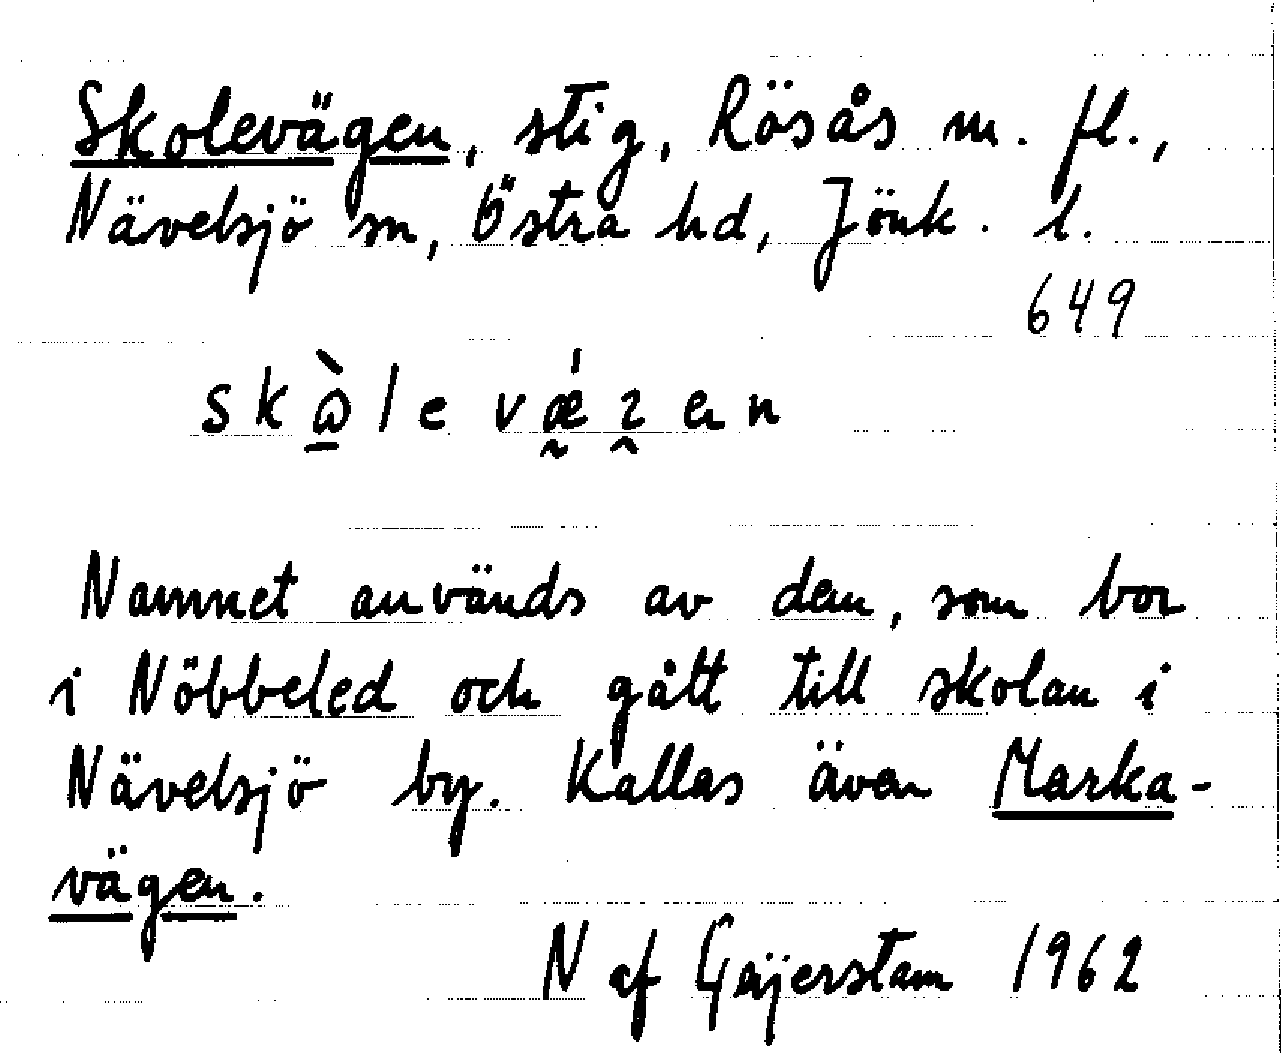 Skolevägen, stig, Rösås m. fl.,
Nävelsjö sn, Östra hd, Jönk. l.
649
skòle vǽgen
Namnet används av dem, som bor
i Nöbbeled och gått till skolan i
Nävelsjö by. Kallas även Marka-
vägen.
N af Geijerstam 1962